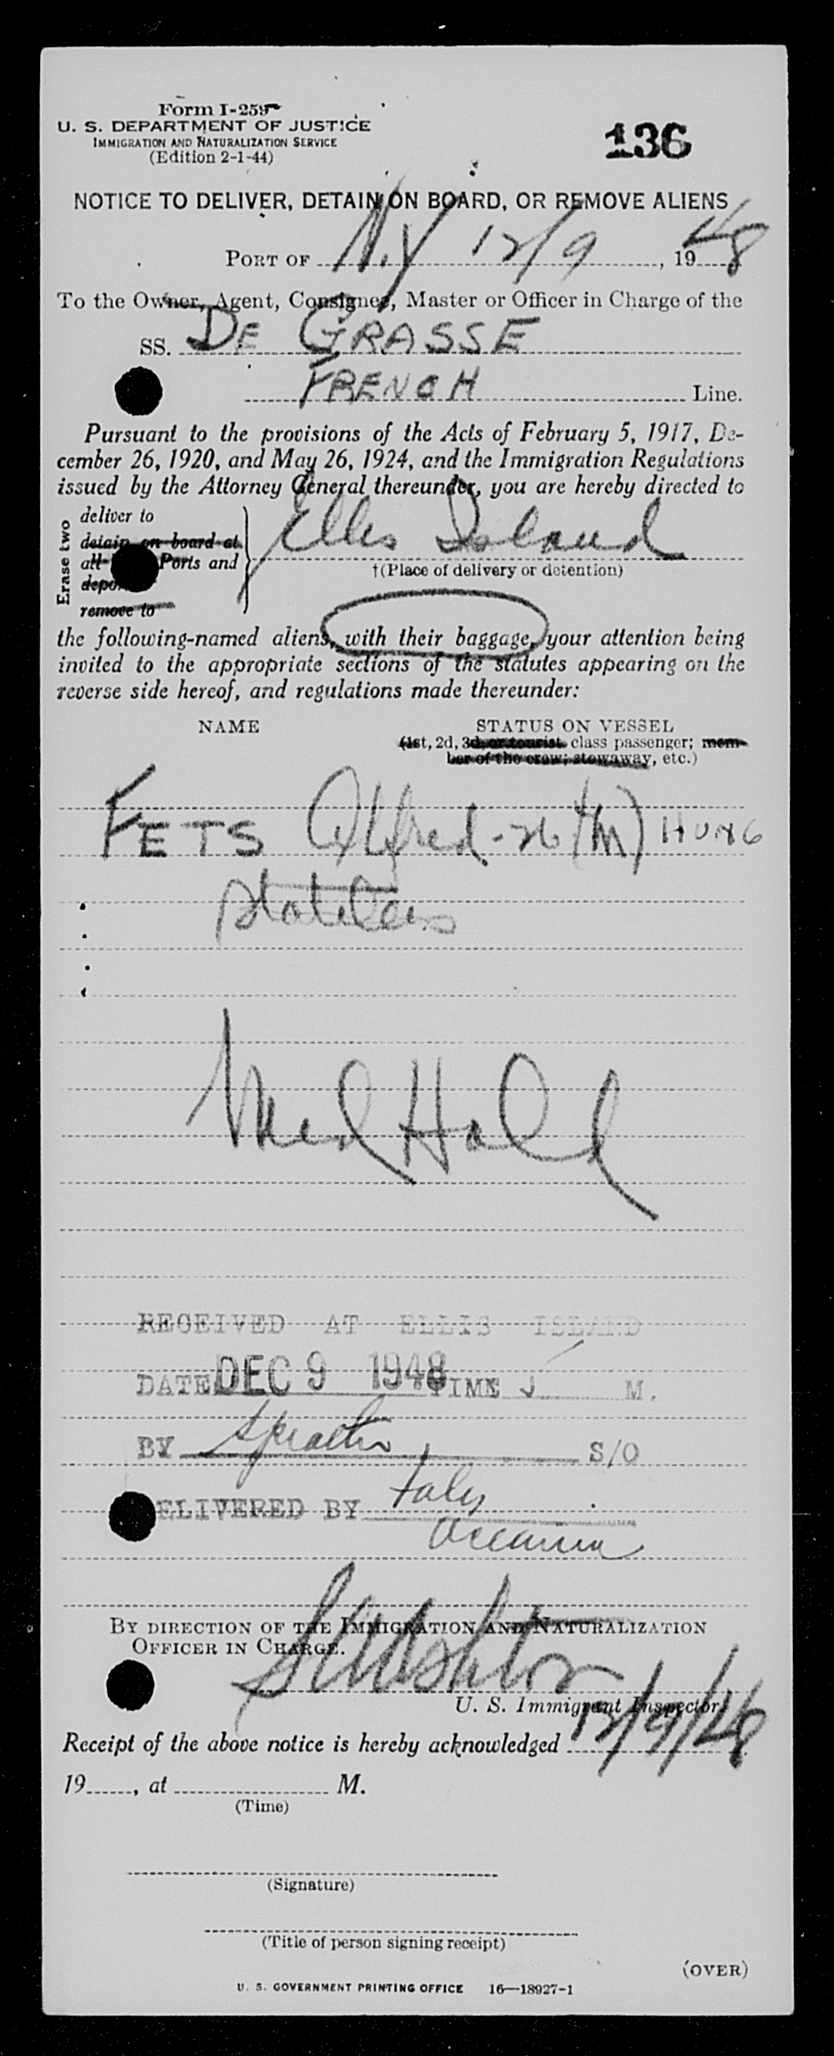 Form I-259
U. S. DEPARTMENT OF JUSTICE
IMMIGRATION AND NATURALIZATION SERVICE
(Edition 2-1-44)
136
NOTICE TO DELIVER, DETAIN ON BOARD, OR REMOVE ALIENS
PORT OF N.Y 12/9, 1948
To the Owner, Agent, Consignee, Master or Officer in Charge of the
SS. DE GRASSE
FRENCH Line.
Pursuant to the provisions of the Acts of February 5, 1917, De-
cember 26, 1920, and May 26, 1924, and the Immigration Regulations
issued by the Attorney General thereunder, you are hereby directed to
Erase two
deliver to
detain on board at
all Ports and
remove to
Ellis Island
†(Place of delivery or detention)
the following-named aliens, with their baggage, your attention being
invited to the appropriate sections of the statutes appearing on the
reverse side hereof, and regulations made thereunder:
NAME STATUS ON VESSEL
(1st, 2d, 3d, or tourist class passenger; mem-
ber of the crew; stowaway, etc.)
FETS Alfred - 26 (M) HUNG
Stateless
Med Hold
RECEIVED AT ELLIS ISLAND
DATE DEC 9 1948 TIME M.
BY S/O
DELIVERED BY
BY DIRECTION OF THE IMMIGRATION AND NATURALIZATION
OFFICER IN CHARGE.
U. S. Immigrant Inspector.
Receipt of the above notice is hereby acknowledged 12/9/48
19, at M.
(Time)
(Signature)
(Title of person signing receipt)
(OVER)
U. S. GOVERNMENT PRINTING OFFICE 16—18927-1